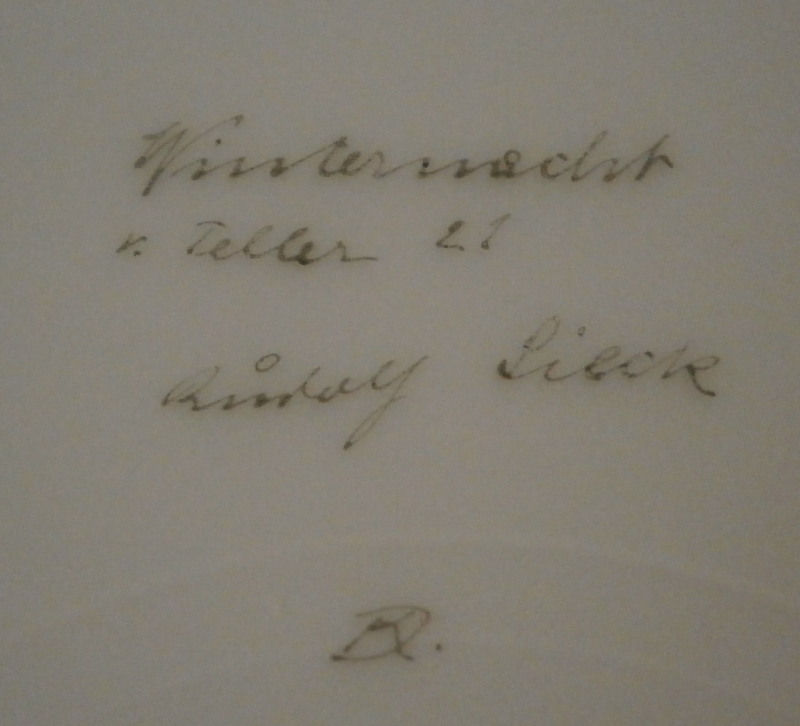 Winternacht
v. Teller 21
Rudolf Sieck